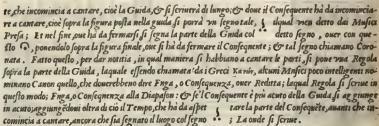 te, che incomincia a cantare, cioè la Guida, & si scriverà di lungo; & dove il Consequente hà da incomincia-
re a cantare, cioè sopra la figura posta nella guida si porrà un segno tale, il qual vien detto dai Musici
Presa; Et nel fine, ove hà da fermarsi, si segna la parte della Guida col detto segno, over con que-
sto, ponendolo sopra la figura finale, ove si hà da fermare il Consequente; & tal segno chiamano Coro-
nata. Fatto questo, per dar notitia, in qual maniera si habbiano a cantare le parti, si pone una Regola
sopra la parte della Guida, laquale essendo chiamata dai Greci Κανὼν, alcuni Musici poco intelligenti no-
minano Canon quello, che doverebbeno dire Fuga, o Consequenza, over Reditta; laqual Regola si scrive in
questo modo; Fuga, o Consequenza alla Diapason: & se'l Consequente è più acuto della Guida si aggiunge
in acuto; aggiungendovi oltra di ciò il Tempo, che hà da aspettare la parte del Consequente, avanti che in-
comincia a cantare, ancora che sia segnato il luogo col segno; La onde si scrive